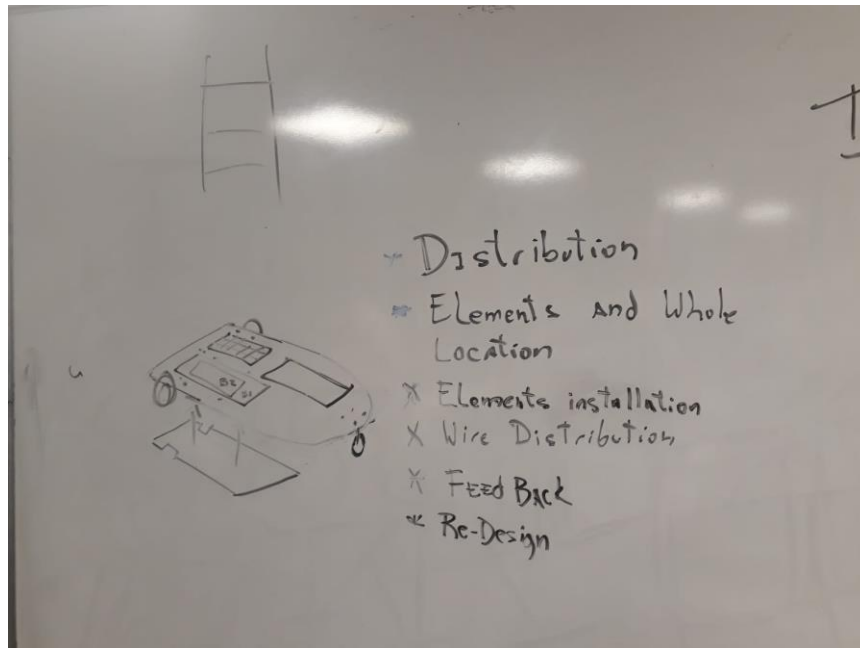 - Distribution
* Elements and Whole
Location
X Elements installation
X Wire Distribution
X FEEd BAck
* Re-Design